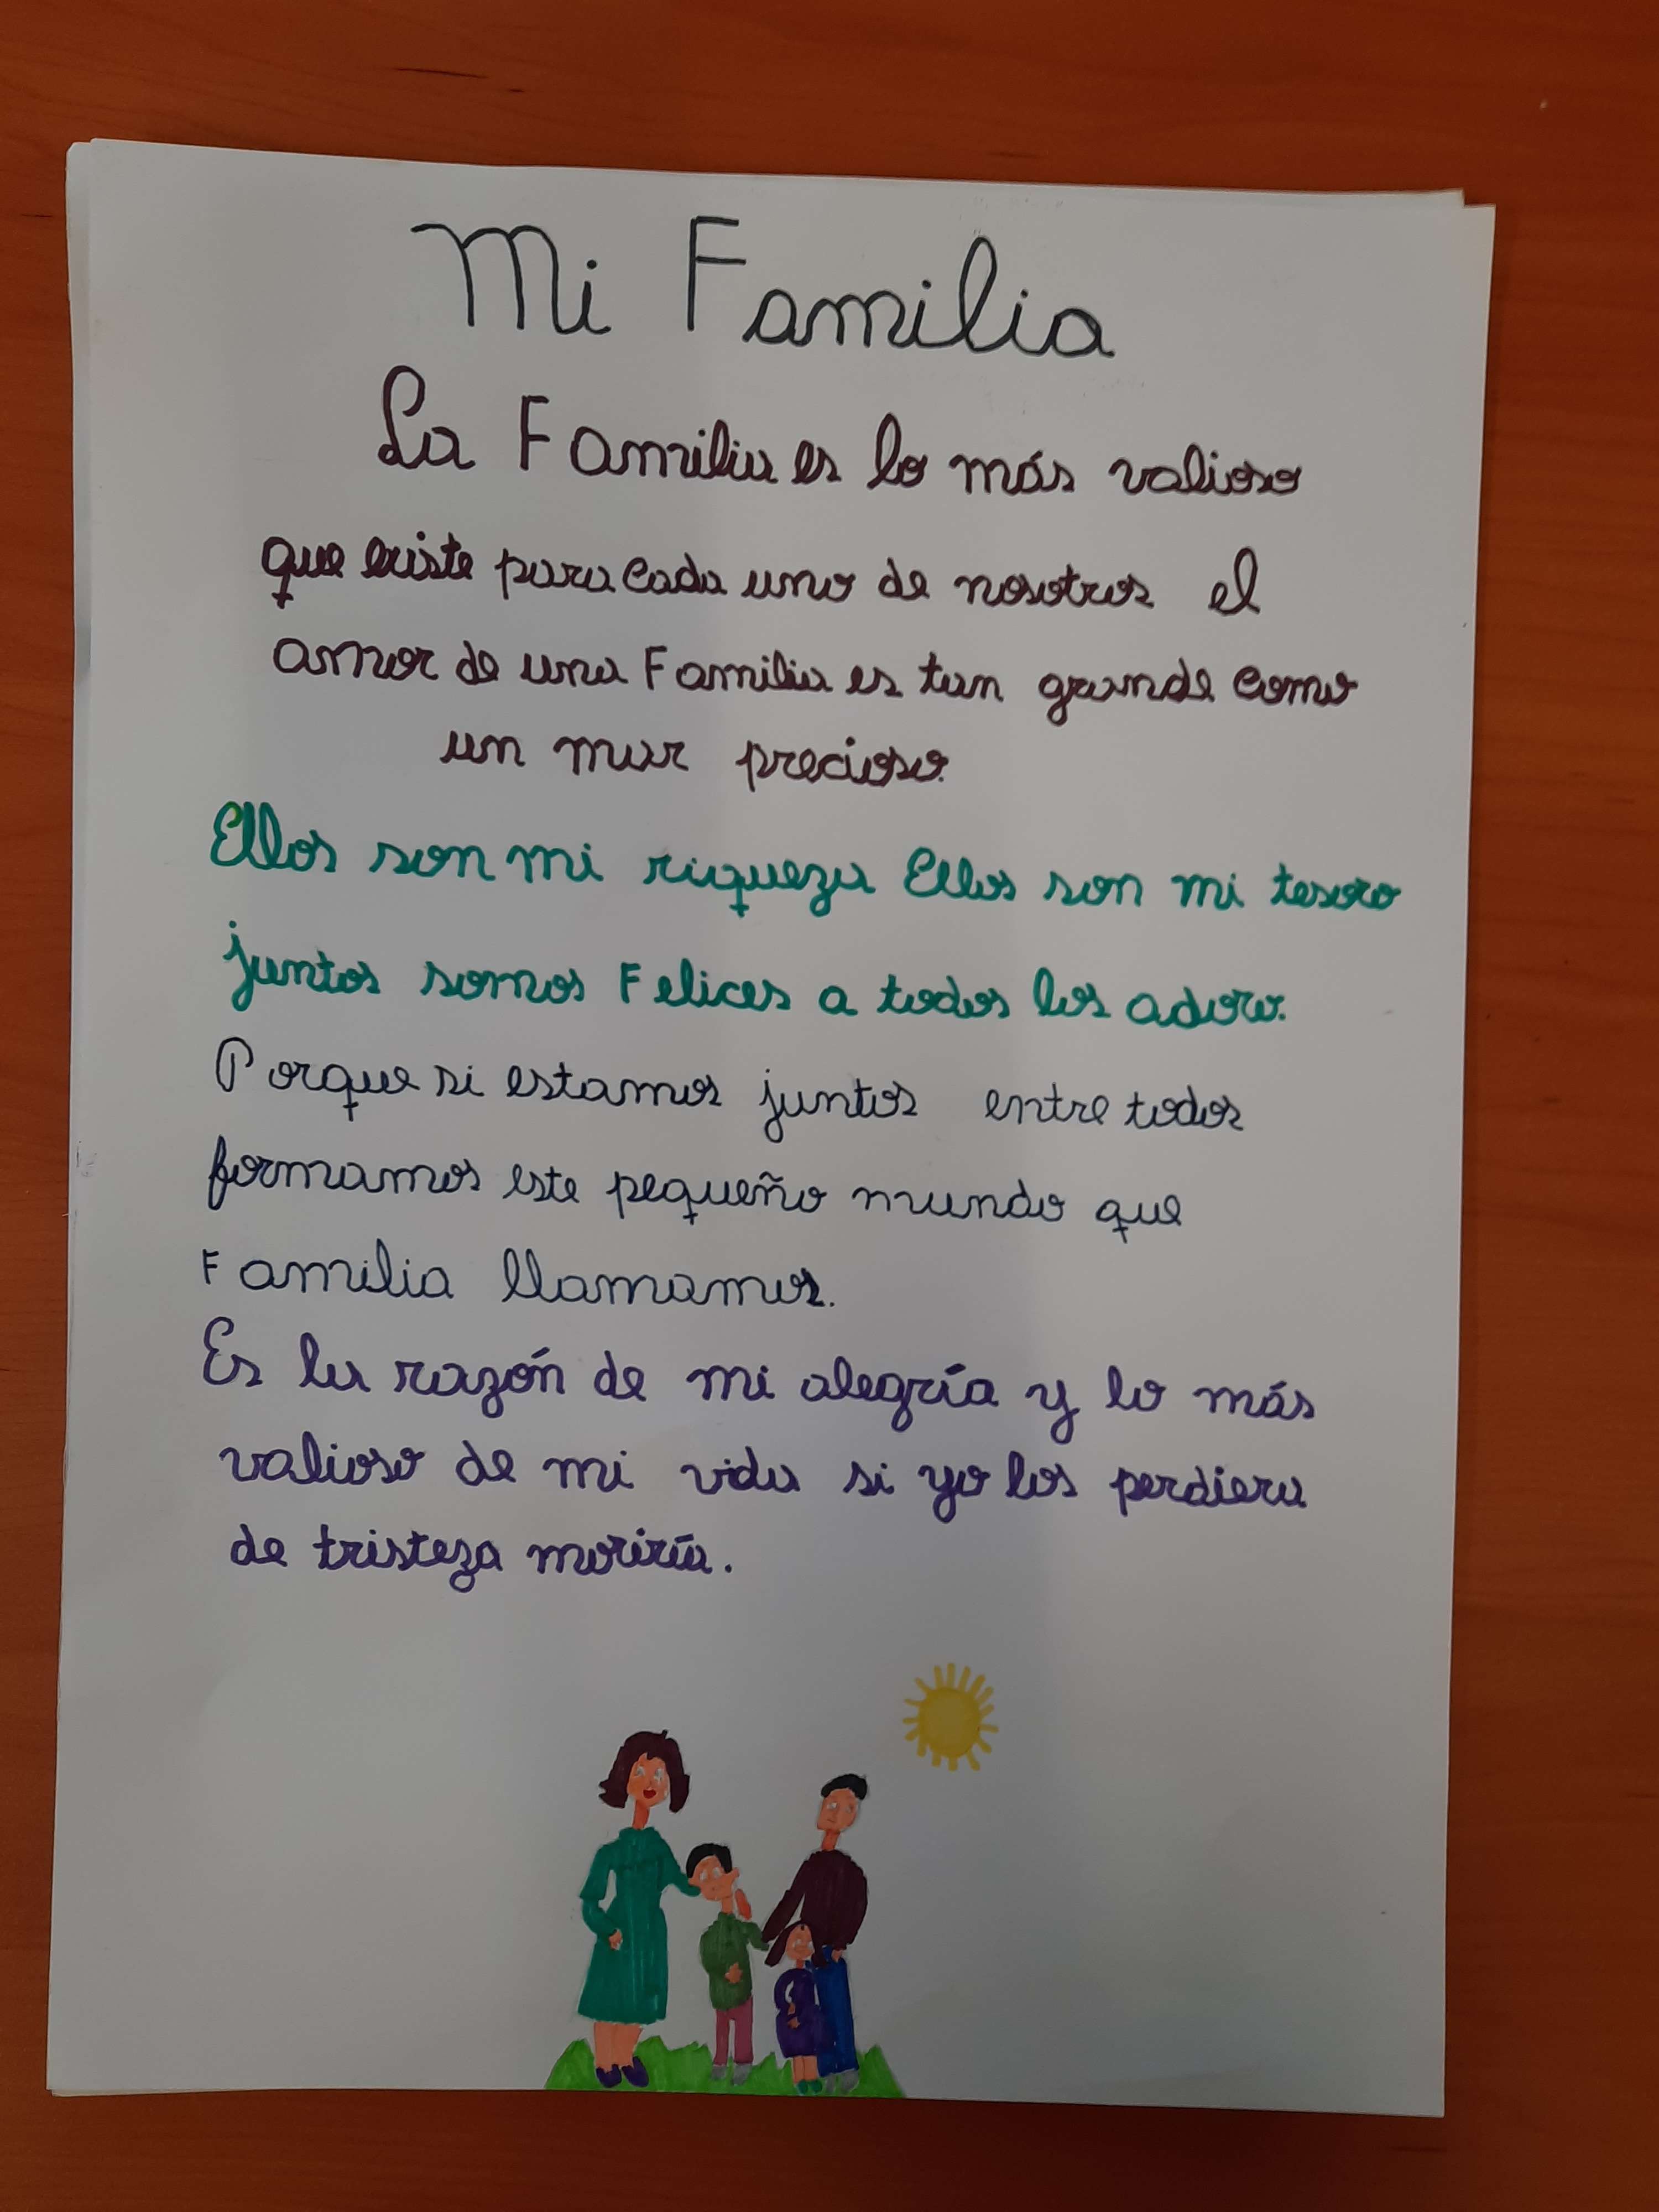 Mi Familia
La Familia es lo más valioso
que existe para cada uno de nosotros el
amor de una Familia es tan grande como
un mar precioso.
Ellos son mi riqueza Ellos son mi tesoro
juntos somos Felices a todos los adoro.
Porque si estamos juntos entre todos
formamos este pequeño mundo que
Familia llamamos.
Es la razón de mi alegría y lo más
valioso de mi vida si yo los perdiera
de tristeza moriría.